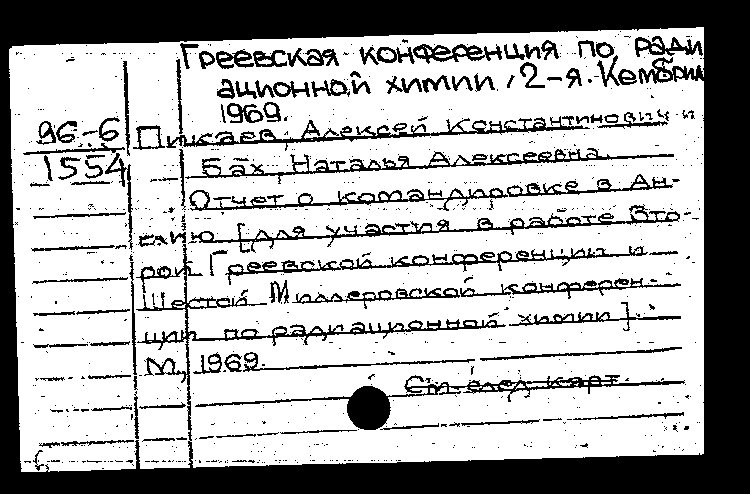 Греевская конференция по ради
ационной химии, 2-я. Кембридж
1969.
96-6
1554
Пикаев, Алексей Константинович и
Бах, Наталья Алексеевна.
Отчет о командировке в Ан-
глию [для участия в работе Вто-
рой Греевской конференции и
Шестой Миллеровской конферен-
ции по радиационной химии].
М., 1969.
См. след. карт.
6